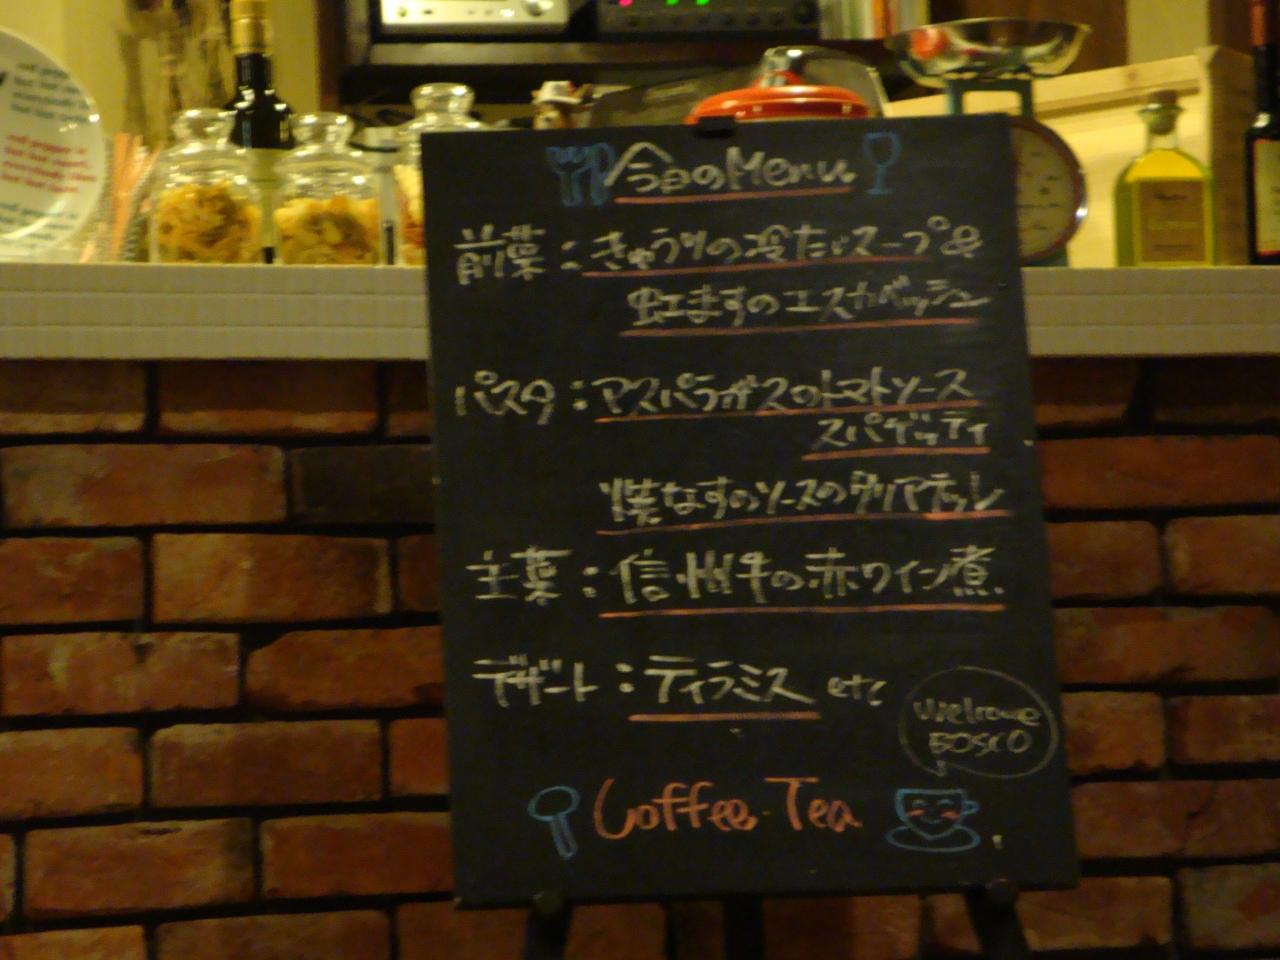 今日のMenu
前菜：きゅうりの冷たいスープ&
虹ますのエスカベッシュ
パスタ：アスパラガスのトマトソース
スパゲッティ
焼なすのソースのタリアテッレ
主菜：信州牛の赤ワイン煮
デザート：ティラミス etc
Welcome
BOSCO
Coffee・Tea